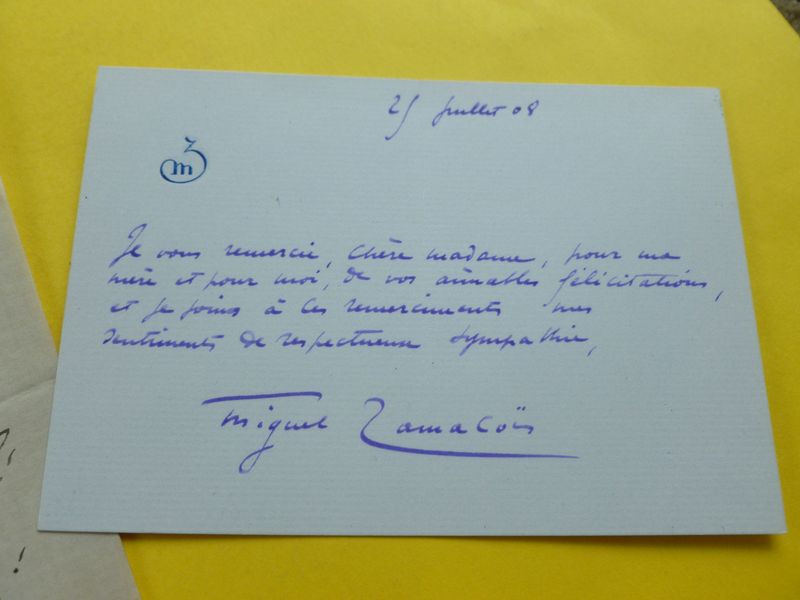 25 Juillet 08
MZ
Je vous remercie, chère madame, pour ma
mère et pour moi, de vos aimables félicitations,
et je joins à ces remerciments mes
sentiments de respectueuse sympathie,
Miguel Zamacoïs